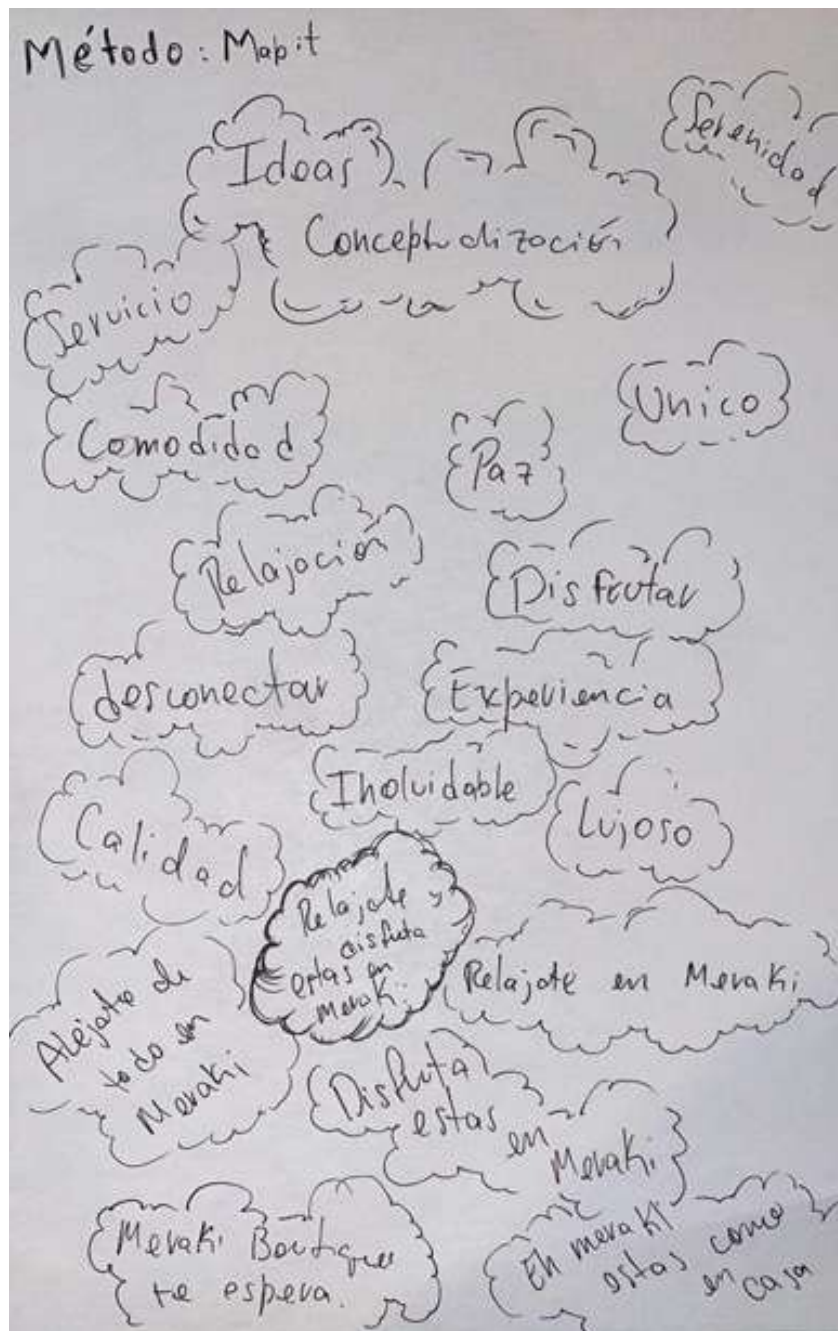 Método: Mapit
Serenidad
Ideas
Conceptualización
Servicio
Unico
Comodidad
Paz
Relajación
Disfrutar
desconectar
Experiencia
Inolvidable
Lujoso
Calidad
Relajate y
disfruta
estas en
meraki.
Relajate en Meraki
Alejate de
todo en
Meraki
Disfruta
estas
en
Meraki
Meraki Boutique
te espera.
En meraki
estas como
en casa